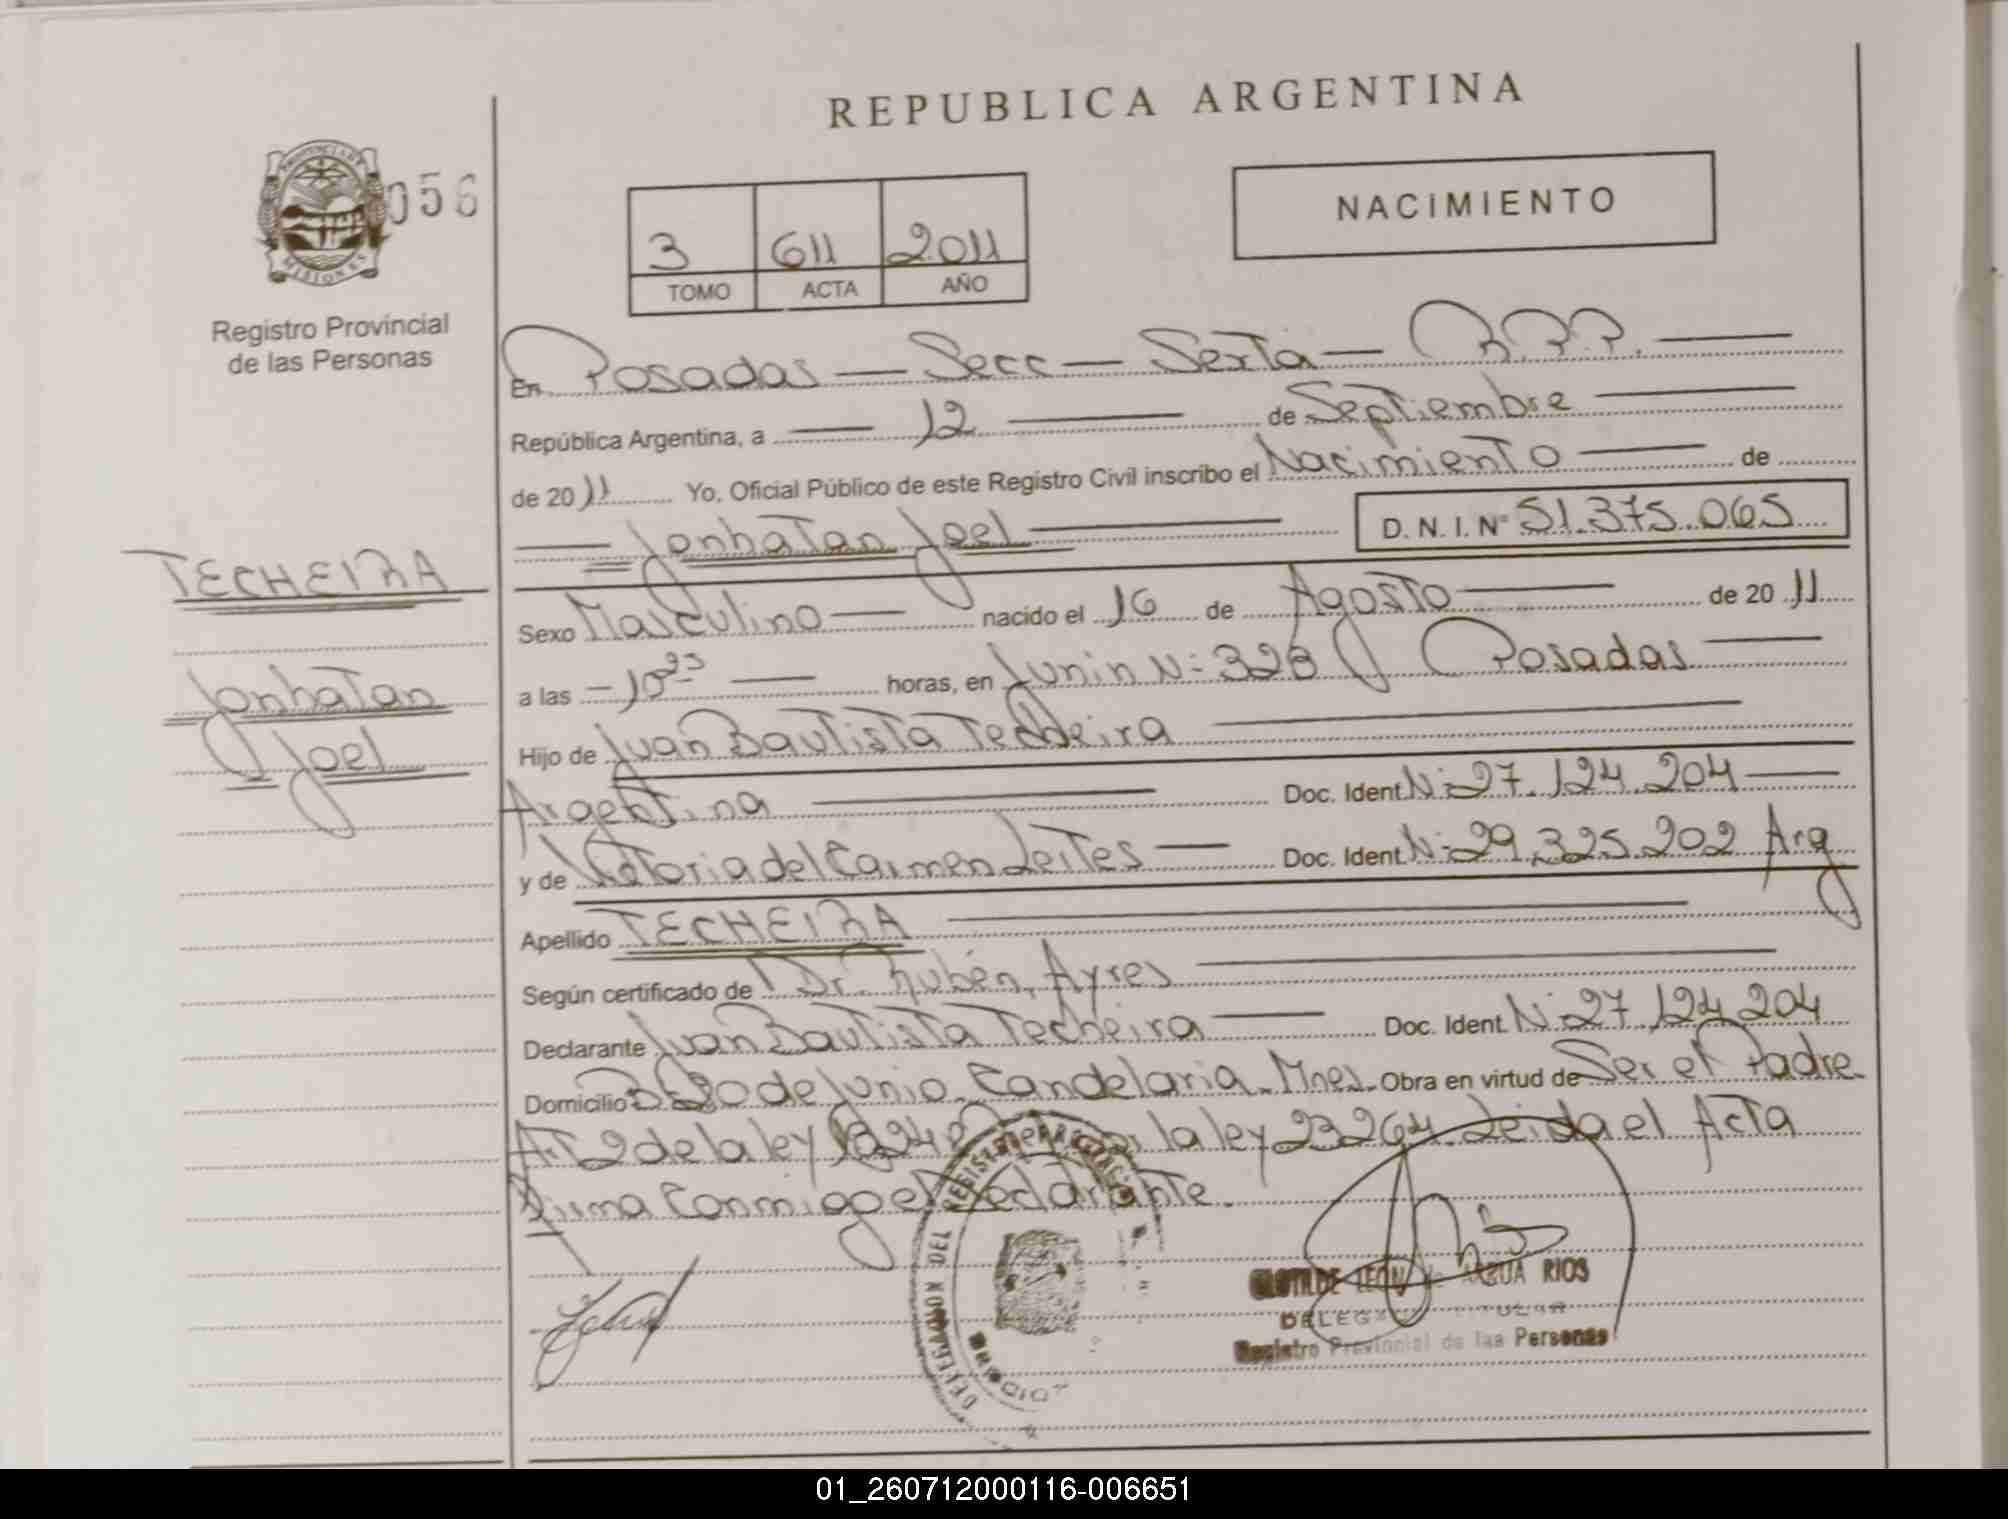 REPUBLICA ARGENTINA
PROVINCIA DE
MISIONES
056
Registro Provincial
de las Personas
3 611 2011
TOMO ACTA AÑO
NACIMIENTO
En Posadas — Secc — Sexta — R.P.P. —
República Argentina, a — 12 — de Septiembre —
de 2011 Yo, Oficial Público de este Registro Civil inscribo el Nacimiento — de
— Jonhatan Joel — D. N. I. N° 51.375.065
TECHEIRA
Jonhatan
Joel
Sexo Masculino — nacido el 16 de Agosto — de 2011
a las — 10 25 — horas, en Junin N: 328 Posadas —
Hijo de Juan Bautista Techeira —
Argentina — Doc. Ident. N: 27.124.204 —
y de Victoria del Carmen Leites — Doc. Ident. N: 29.325.202 Arg
Apellido TECHEIRA —
Según certificado de Dr. Rubén, Ayres —
Declarante Juan Bautista Techeira — Doc. Ident. N: 27.124.204
Domicilio 20 de Junio. Candelaria. Mnes. Obra en virtud de Ser el Padre
Art 2 de la ley la ley 23264. Leida el Acta
Firma Conmigo el Declarante.
DELEGACION DEL REGISTRO
CLOTILDE LEON de ARRUA RIOS
DELEGADA TITULAR
Registro Provincial de las Personas
01_260712000116-006651